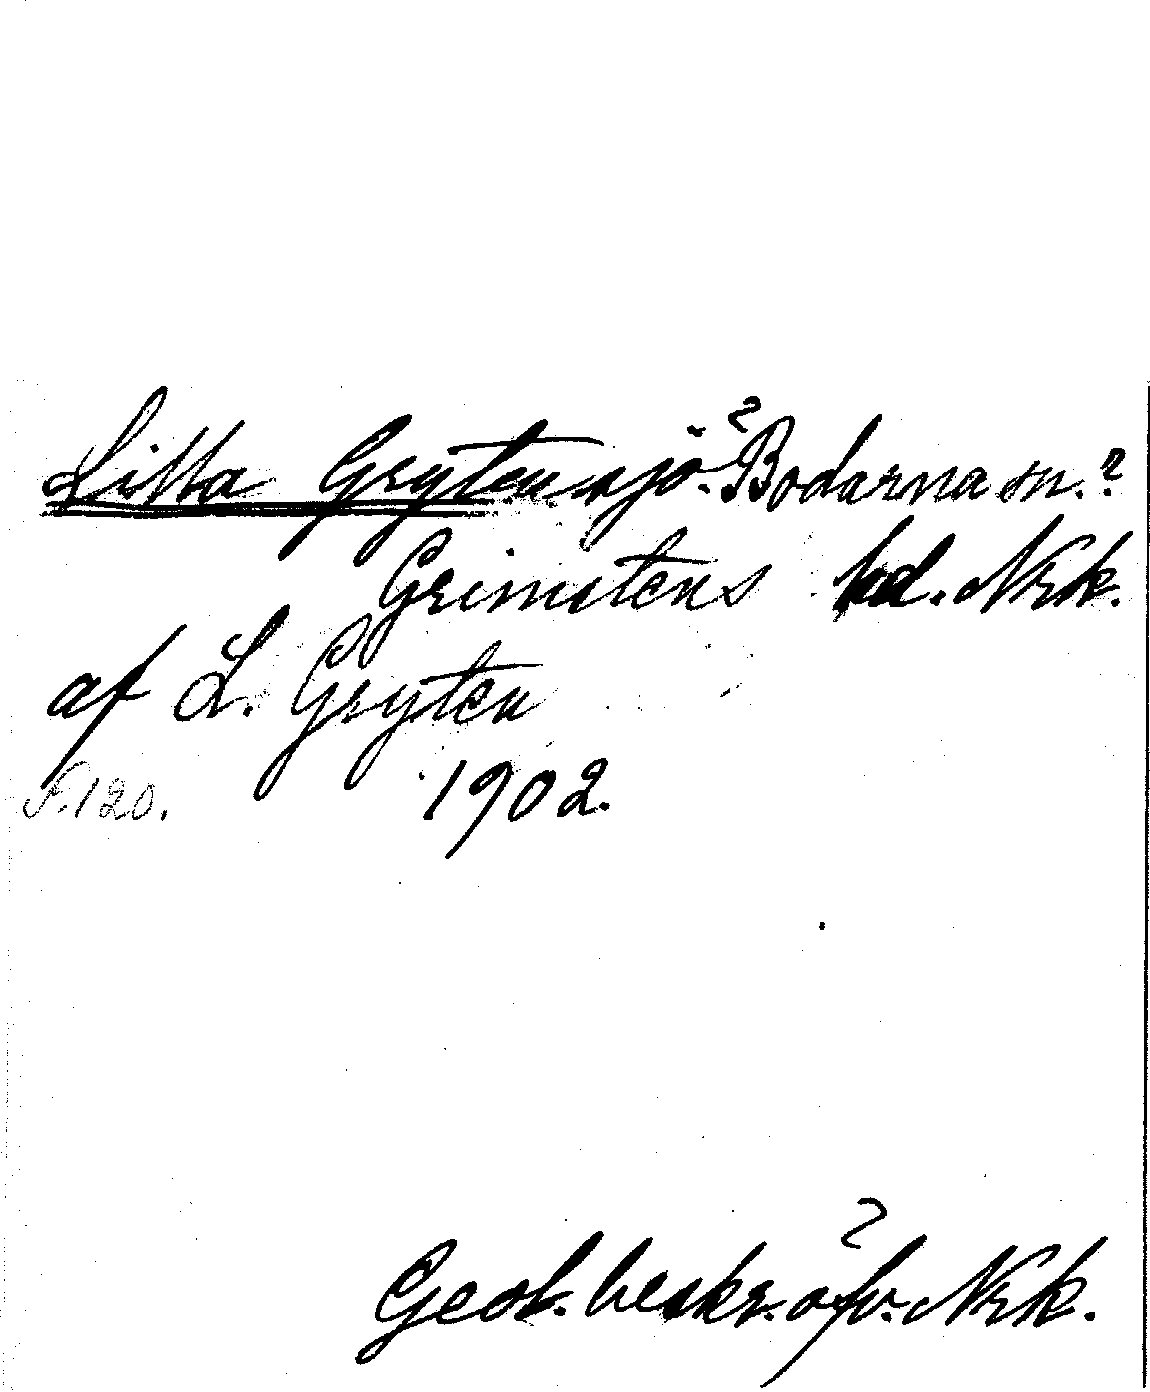 Lilla Gryten sjö. Bodarna sn.?
Grimstens hd. Nrk.
af L. Gryten
F. 120. 1902.
Geol. beskr. öfv. Nrk.